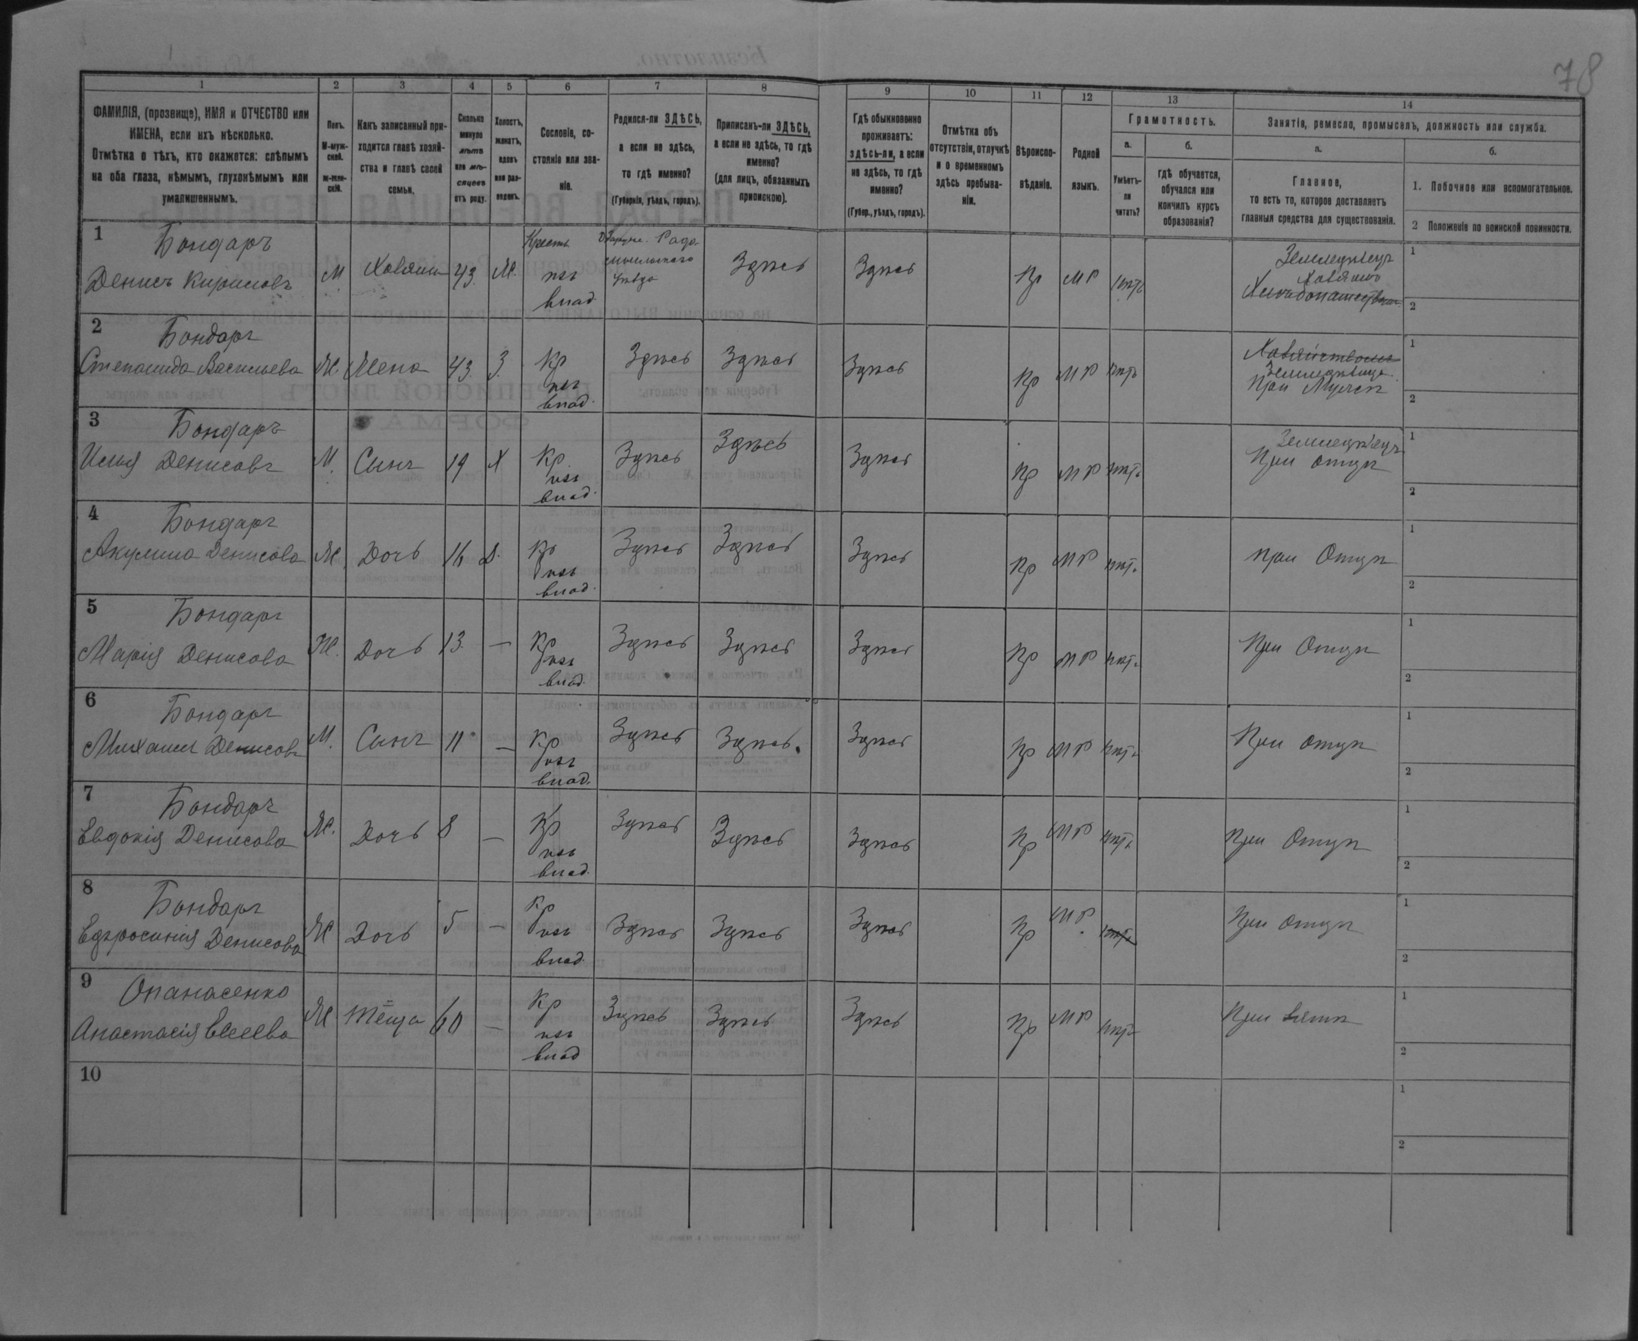 78
1 2 3 4 5 6 7 8 9 10 11 12 13 14
ФАМИЛІЯ, (прозвище), ИМЯ и ОТЧЕСТВО или
ИМЕНА, если ихъ нѣсколько.
Отмѣтка о тѣхъ, кто окажется: слѣпымъ
на оба глаза, нѣмымъ, глухонѣмымъ или
умалишеннымъ.
Полъ.
М-муж-
ской.
ж-жен-
скій.
Какъ записанный при-
ходится главѣ хозяй-
ства и главѣ своей
семьи.
Сколько
минуло
лѣтъ
или мѣ-
сяцевъ
отъ роду.
Холостъ,
женатъ,
вдовъ
или раз-
веденъ.
Сословіе, со-
стояніе или зва-
ніе.
Родился-ли ЗДѢСЬ,
а если не здѣсь,
то гдѣ именно?
(Губернія, уѣздъ, городъ).
Приписанъ-ли ЗДѢСЬ,
а если не здѣсь, то гдѣ
именно?
(для лицъ, обязанныхъ
припискою).
Гдѣ обыкновенно
проживаетъ:
здѣсь-ли, а если
не здѣсь, то гдѣ
именно?
(Губер., уѣздъ, городъ).
Отмѣтка объ
отсутствіи, отлучкѣ
и о временномъ
здѣсь пребыва-
ніи.
Вѣроиспо-
вѣданіе.
Родной
языкъ.
Грамотность.
а.
Умѣетъ-
ли
читать?
б.
гдѣ обучается,
обучался или
кончилъ курсъ
образованія?
Занятіе, ремесло, промыселъ, должность или служба.
а.
Главное,
то есть то, которое доставляетъ
главныя средства для существованія.
б.
1. Побочное или вспомогательное.
2 Положеніе по воинской повинности.
1 Бондаръ
Денисъ Кириловъ М Хозяинъ 43 Ж. Крест. изъ влад Рада уѣзда Здѣсь Здѣсь Пр МР нѣтъ Земледѣлецъ Хозяинъ
1
2
2 Бондаръ
Степанида Васильева Ж. Жена 43 З. Кр изъ влад. Здѣсь Здѣсь Здѣсь Пр МР нѣтъ Земледѣлица При Мужѣ
1
2
3 Бондаръ
Илья Денисовъ М. Сынъ 19 Х Кр. изъ влад. Здѣсь Здѣсь Здѣсь Пр МР нѣтъ Земледѣлецъ При отцѣ
1
2
4 Бондаръ
Акулина Денисова Ж Дочь 16 Д. Кр изъ влад. Здѣсь Здѣсь Здѣсь Пр МР нѣтъ При Отцѣ
1
2
5 Бондаръ
Марія Денисова Ж. Дочь 13 — Кр изъ влад. Здѣсь Здѣсь Здѣсь Пр МР нѣтъ При Отцѣ
1
2
6 Бондаръ
Михаилъ Денисовъ М. Сынъ 11 — Кр изъ влад. Здѣсь Здѣсь. Здѣсь Пр МР нѣтъ При отцѣ
1
2
7 Бондаръ
Евдокія Денисова Ж. Дочь 8 — Кр изъ влад. Здѣсь Здѣсь Здѣсь Пр МР нѣтъ При Отцѣ
1
2
8 Бондаръ
Ефросинія Денисова Ж Дочь 5 — Кр изъ влад. Здѣсь Здѣсь Здѣсь Пр МР нѣтъ При отцѣ
1
2
9 Опанасенко
Анастасія Евсеева Ж Тёща 60 — Кр изъ влад Здѣсь Здѣсь Здѣсь Пр МР нѣтъ При зятѣ
1
2
10
1
2